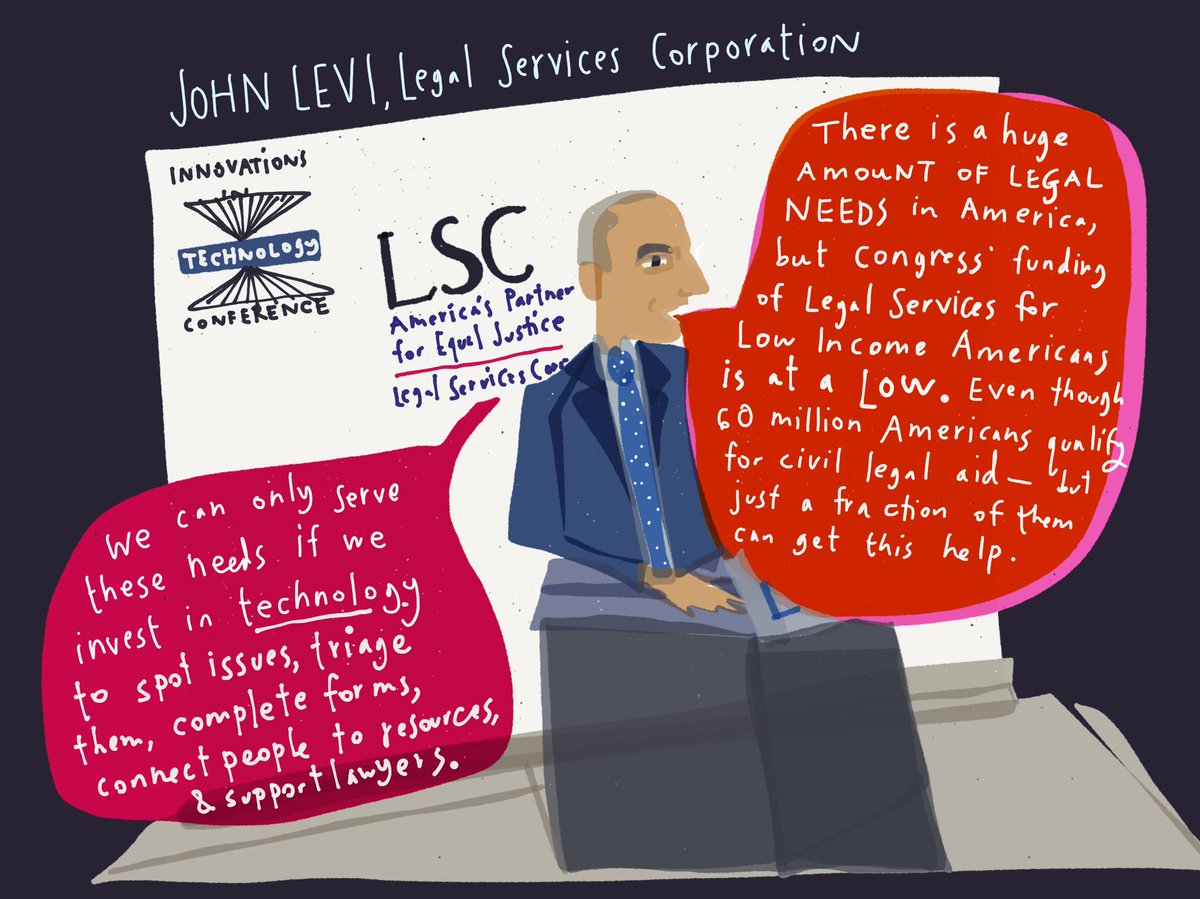 JOHN LEVI, Legal Services Corporation
INNOVATIONS
IN
TECHNOLOGY
CONFERENCE
LSC
America's Partner
for Equal Justice
Legal Services Corp
There is a huge
AMOUNT OF LEGAL
NEEDS in America,
but Congress' funding
of Legal Services for
Low Income Americans
is at a Low. Even though
60 million Americans qualify
for civil legal aid — but
just a fraction of them
can get this help.
We can only serve
these needs if we
invest in technology
to spot issues, triage
them, complete forms,
connect people to resources,
& support lawyers.
L